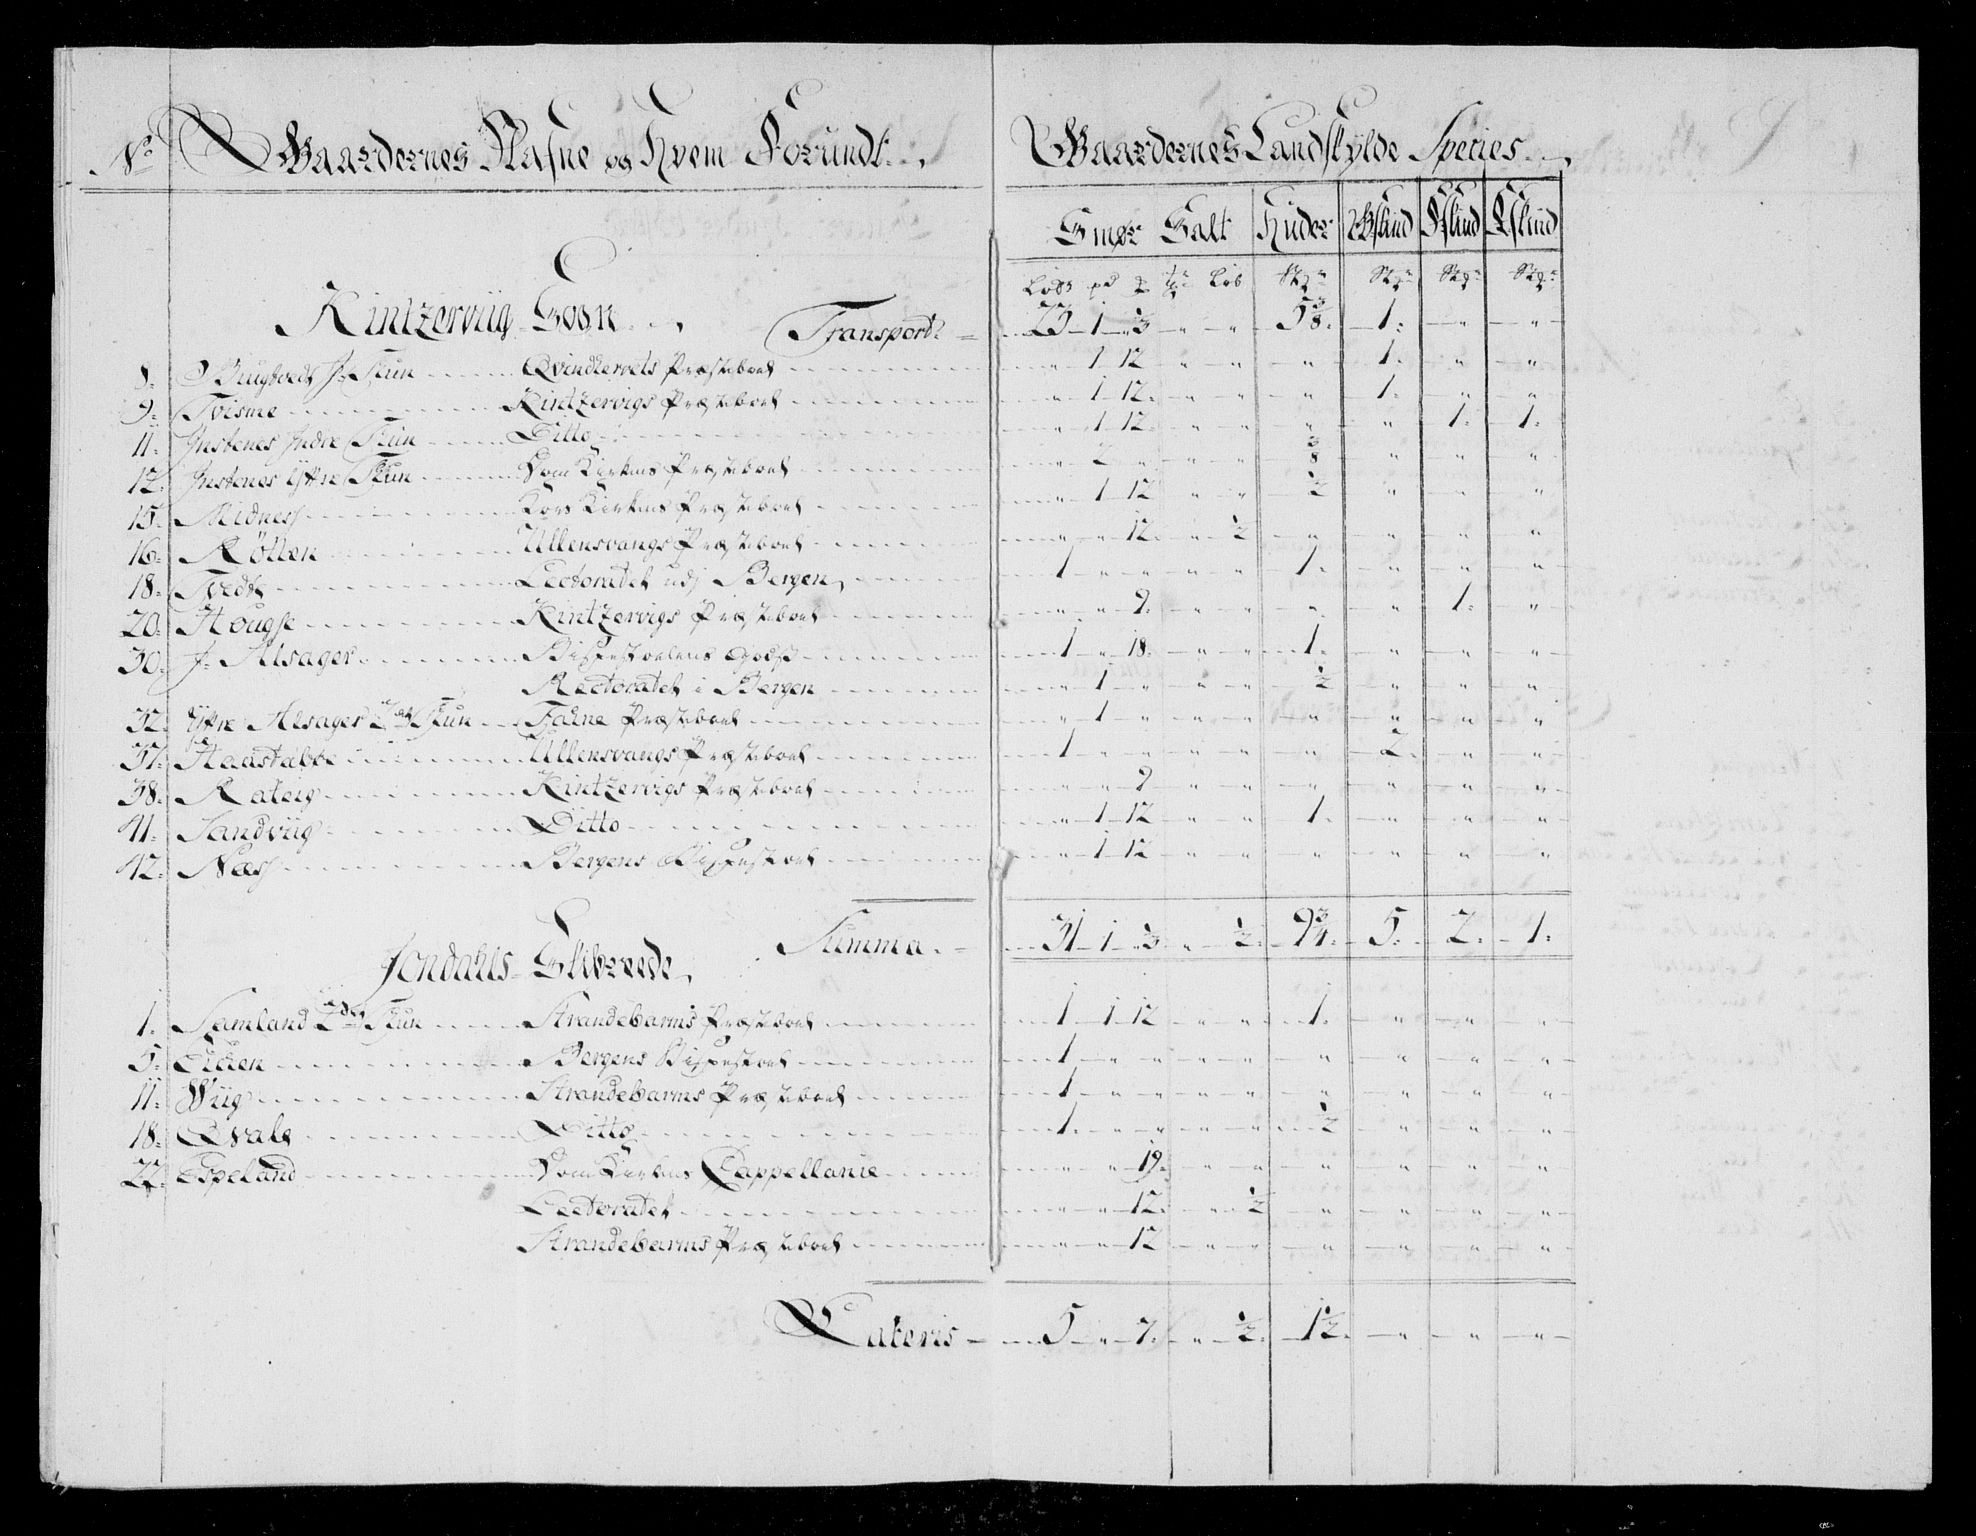 No Gaardernes Nafne og Hvem Forundt. Gaardernes Landskylde Species.
Smør Salt Huder Bskind Skind
Kintzerviig Sogn. Transport 23 1 1/3 " " 5 3/8 1 " "
8. J. Skun Qvindherrets Præsteboel " 1 12 " " " 1 " "
9. Tvisme Kintzervigs Præsteboel " 1 12 " " " 1 " "
11. Instenes Indre Skun Ditto " 1 12 " " " " 1 1
12. Instenes Yttre Skun Dom Kirkens Præsteboel " 2 " " " 3/8 " " "
15. Midnes Kors Kirkens Præsteboel " 1 12 " " 1/2 " " "
16. Røtten Ullensvangs Præsteboel " " 12 " 1/2 " " " "
18. Tvedt Lectoratet udj Bergen 1 " " " " 1 " " "
20. Hougse Kintzervigs Præsteboel " " 9 " " " " 1 "
30. J. Alsager Bispestoelens Godß 1 " 18 " " 1 " " "
Rectoratet i Bergen " 1 " " " 1/2 " " "
32. Yttre Alsager 2de Skun Fahne Præsteboel " 1 " " " " " " "
37. Haastabbe Ullensvangs Præsteboel 1 " " " " " 2 " "
38. Rateig Kintzervigs Præsteboel " " 9 " " " " " "
41. Sandviig Ditto " 1 12 " " 1 " " "
42. Næs Bergens Bispestoel " 1 12 " " " " " "
Summa 31 1 1/3 " 1/2 9 3/4 5 2 1
Jondahls Skibrede
1. Samland 2de Skun Strandebarms Præsteboel 1 1 12 " " 1 " " "
5. Eiden Bergens Bispestoel 1 " " " " " " " "
11. Wiig Strandebarms Præsteboel 1 " " " " " " " "
18. Qvale Ditto 1 " " " " 1/2 " " "
22. Espeland Dom Kirkens Cappellanie " " 19 " " " " " "
Lectoratet " " 12 " 1/2 " " " "
Strandebarms Præsteboel " " 12 " " " " " "
Lateris 5 " 7 " 1/2 1 1/2 " " "